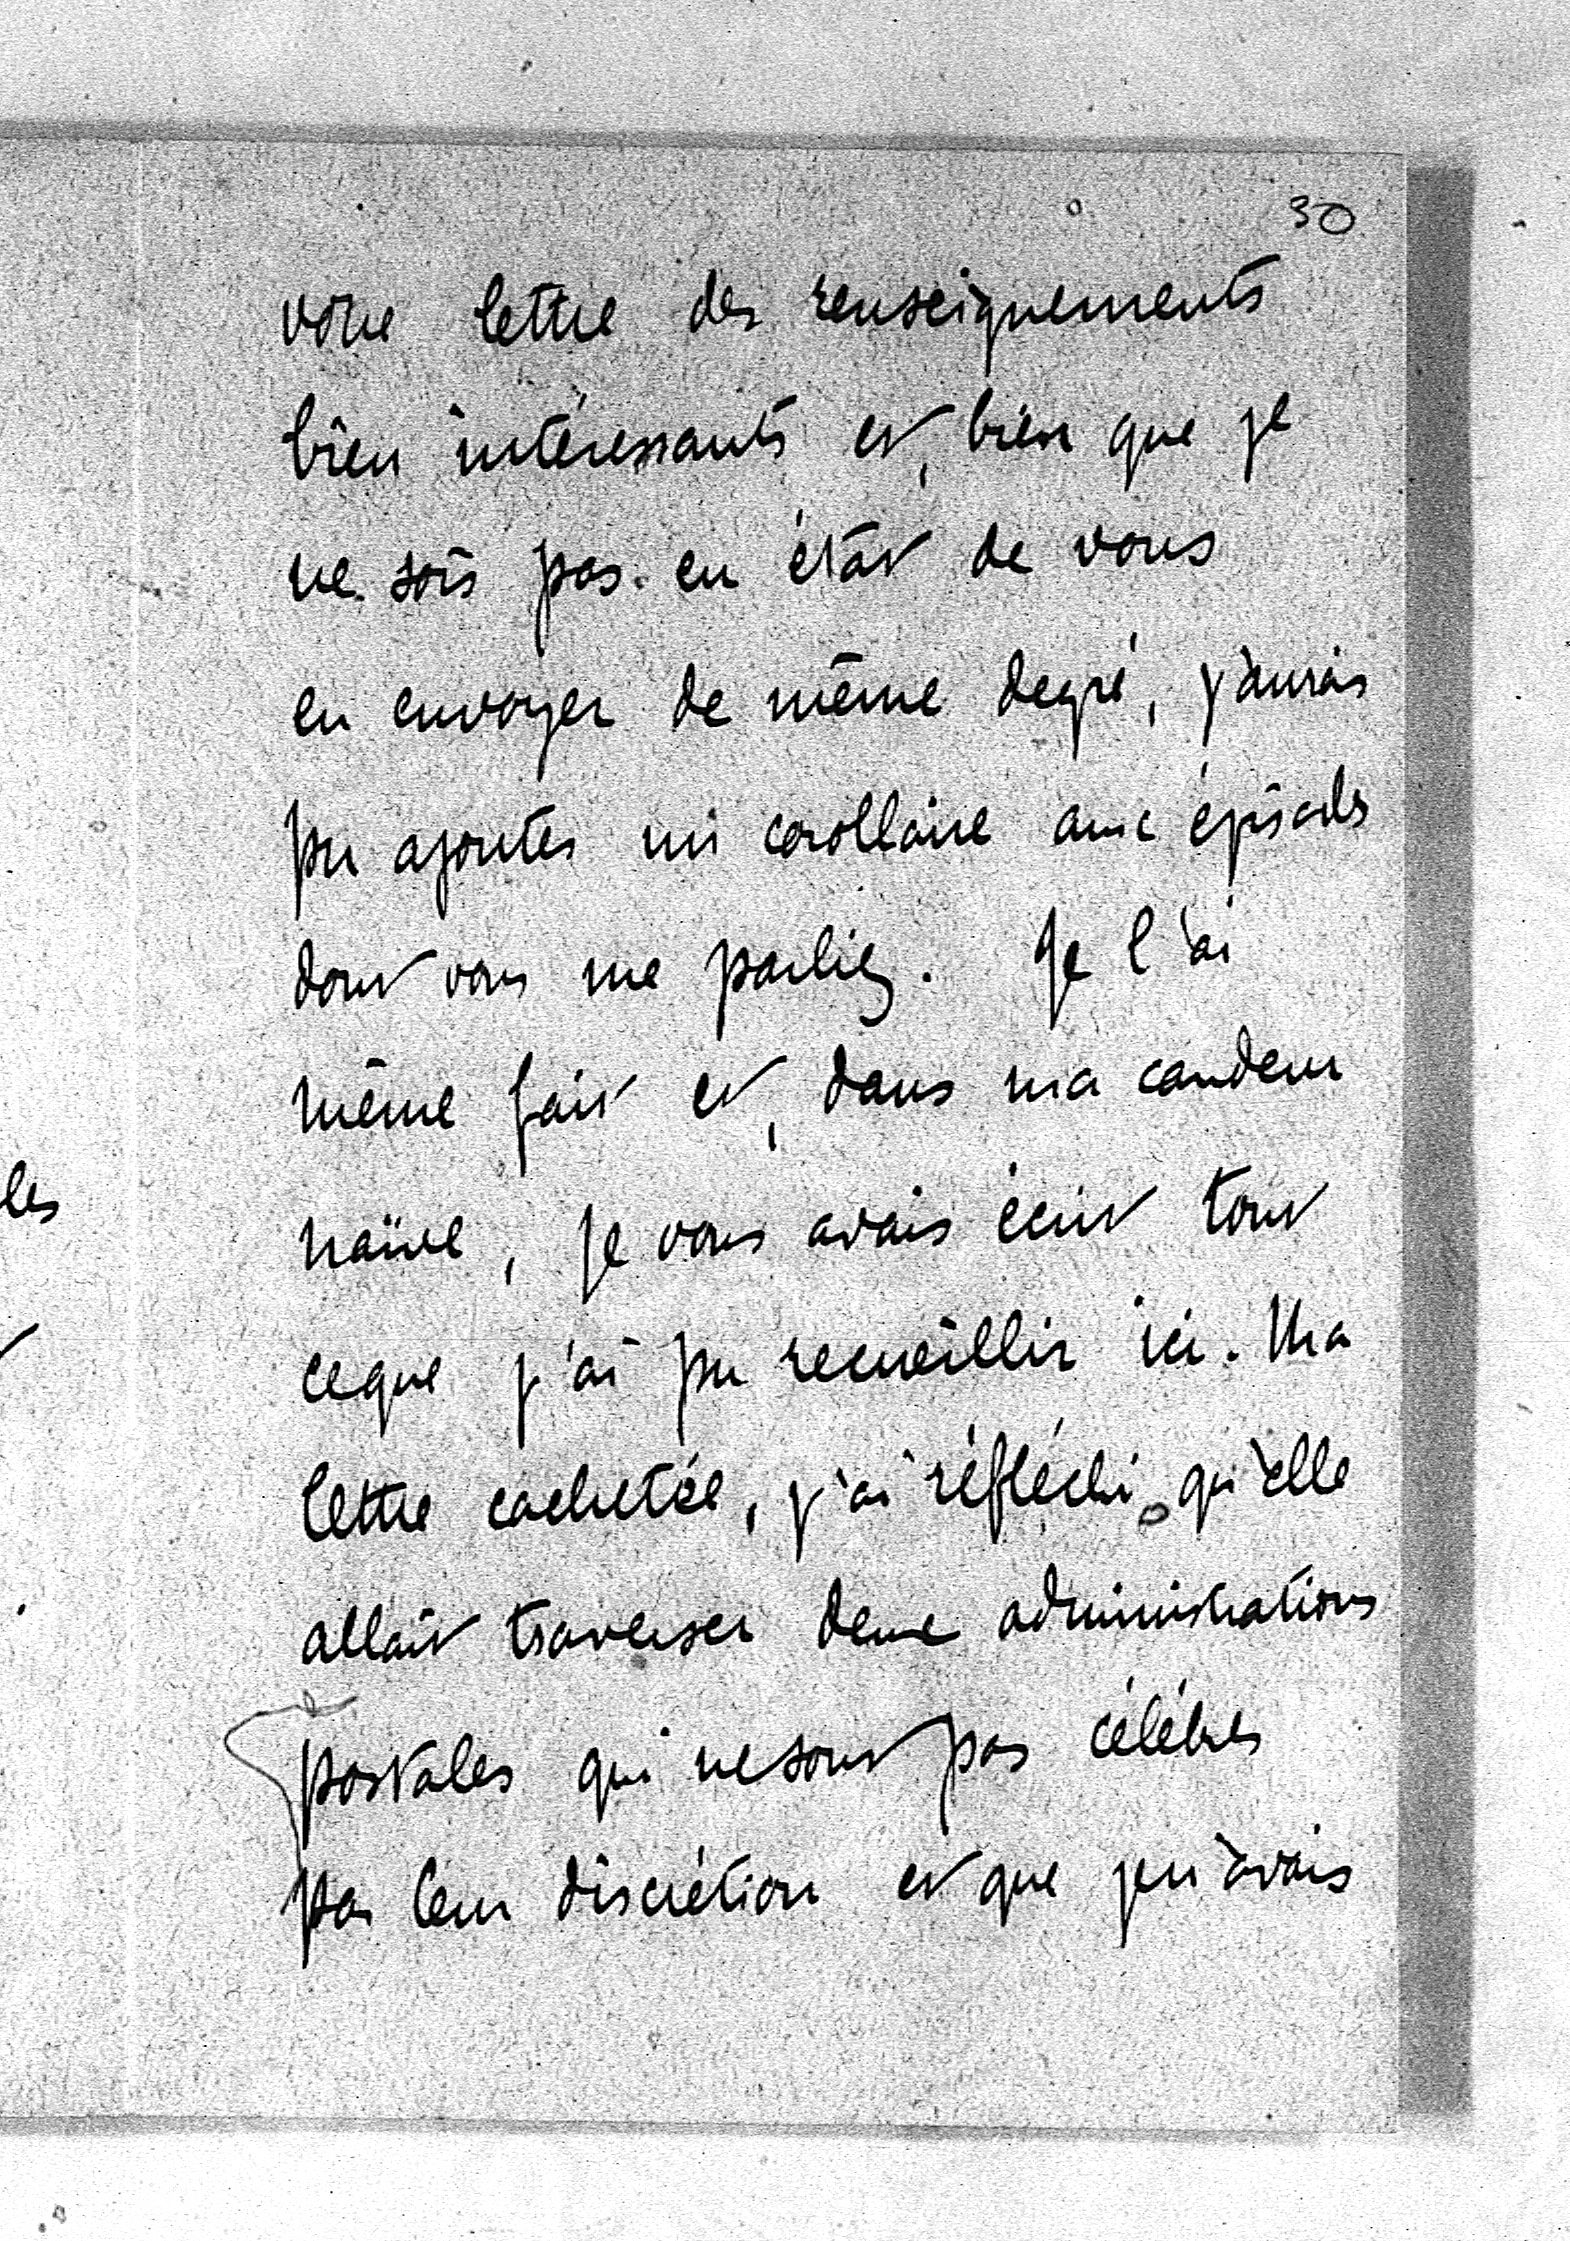 30
votre lettre des renseignements
bien intéressants et, bien que je
ne sois pas en état de vous
en envoyer de même degré, j'aurais
pu ajouter un corollaire aux épisodes
dont vous me parliez. Je l'ai
même fait et, dans ma candeur
naïve, je vous avais écrit tout
ceque j'ai pu recueillir ici. Ma
lettre cachetée, j'ai réfléchi qu'elle
allait traverser deux administrations
postales qui ne sont pas célèbres
par leur discrétion et que je n'avais
les